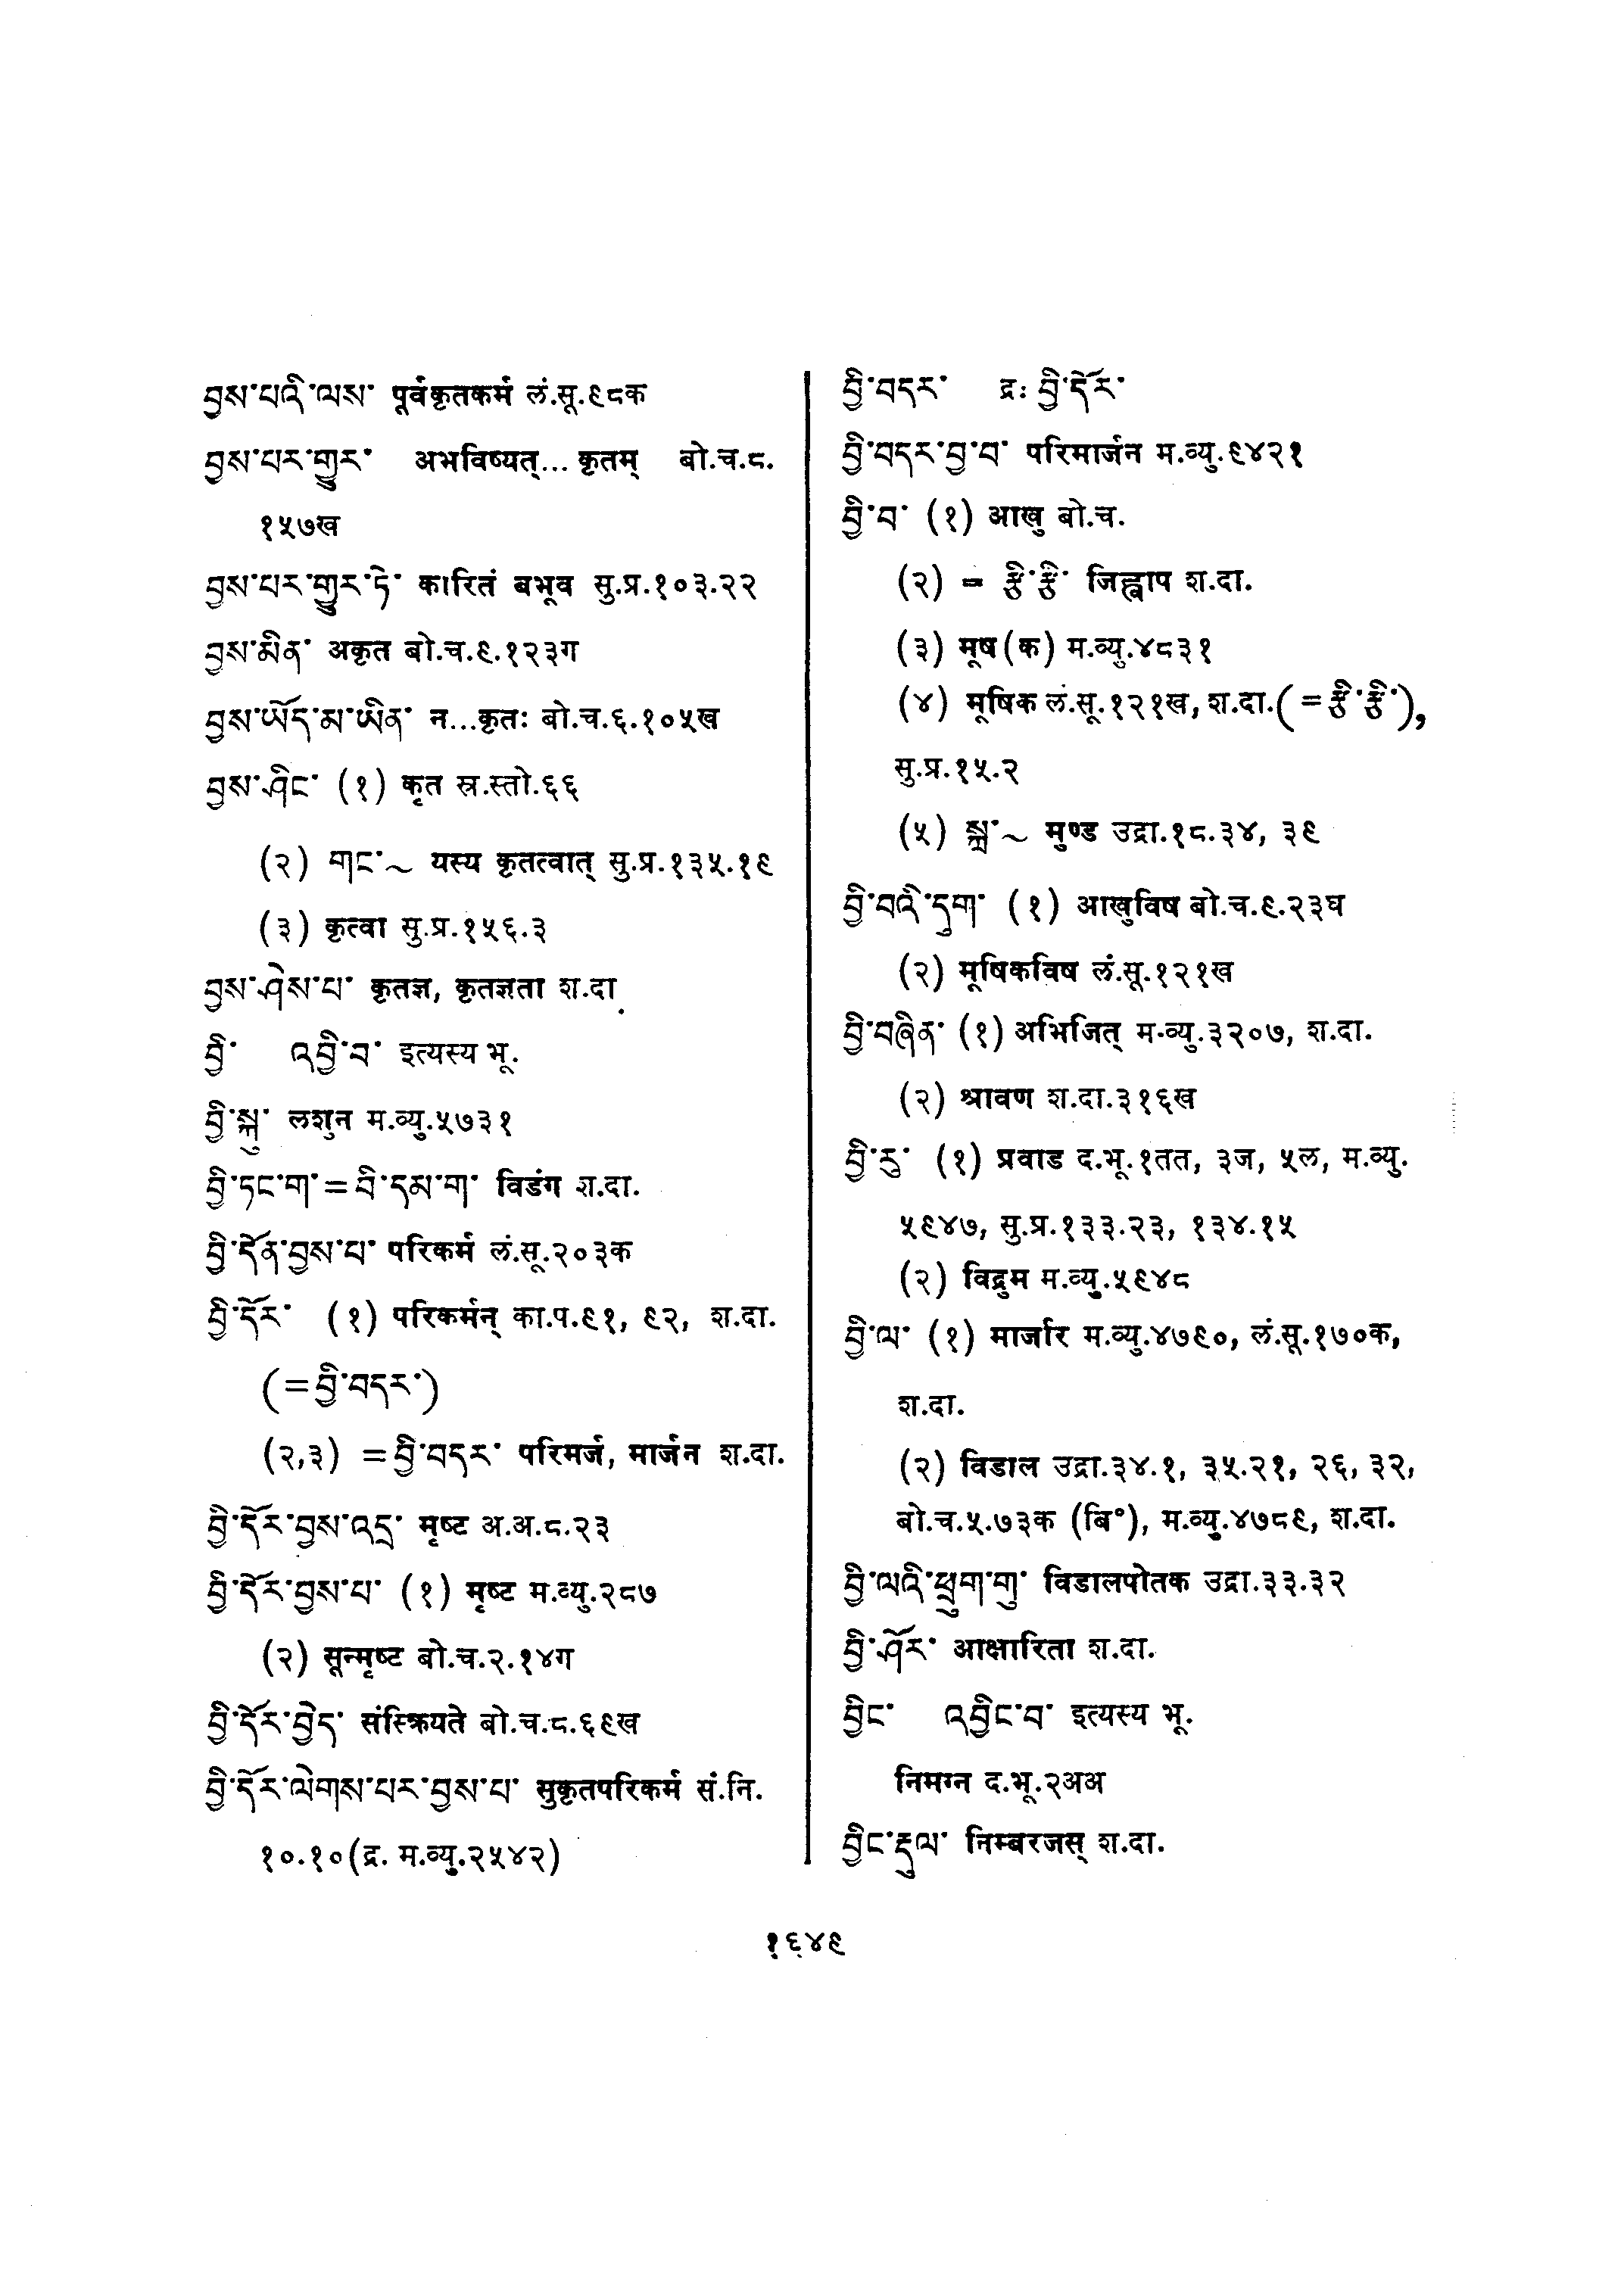 བྱས་པའི་ལས་ पूर्वकृतकर्म लं.सू.९८क
བྱས་པར་གྱུར་ अभविष्यत्... कृतम् बो.च.८.
१५७ख
བྱས་པར་གྱུར་ཏེ་ कारितं बभूव सु.प्र.१०३.२२
བྱས་མིན་ अकृत बो.च.९.१२३ग
བྱས་ཡོད་མ་ཡིན་ न...कृतः बो.च.६.१०५ख
བྱས་ཤིང་ (१) कृत स्र.स्तो.६६
(२) གང་~ यस्य कृतत्वात् सु.प्र.१३५.१९
(३) कृत्वा सु.प्र.१५६.३
བྱས་ཤེས་པ་ कृतज्ञ, कृतज्ञता श.दा.
བྱི་ འབྱི་བ་ इत्यस्य भू.
བྱི་སྐྱུ་ लशुन म.व्यु.५७३१
བྱི་ཏང་ག་=བི་དམ་ག་ विडंग श.दा.
བྱི་དོན་བྱས་པ་ परिकर्म लं.सू.२०३क
བྱི་དོར་ (१) परिकर्मन् का.प.९१, ९२, श.दा.
(=བྱི་བདར་)
(२,३) =བྱི་བདར་ परिमर्ज, मार्जन श.दा.
བྱི་དོར་བྱས་འདྲ་ मृष्ट अ.अ.८.२३
བྱི་དོར་བྱས་པ་ (१) मृष्ट म.व्यु.२८७
(२) सून्मृष्ट बो.च.२.१४ग
བྱི་དོར་བྱེད་ संस्क्रियते बो.च.८.६९ख
བྱི་དོར་ལེགས་པར་བྱས་པ་ सुकृतपरिकर्म सं.नि.
१०.१०(द्र. म.व्यु.२५४२)
བྱི་བདར་ द्रः བྱི་དོར་
བྱི་བདར་བྱ་བ་ परिमार्जन म.व्यु.९४२१
བྱི་བ་ (१) आखु बो.च.
(२) = ཙི་ཙི་ जिह्वाप श.दा.
(३) मूष(क) म.व्यु.४८३१
(४) मूषिक लं.सू.१२१ख, श.दा.(=ཙི་ཙི་),
सु.प्र.१५.२
(५) སྐྲ་~ मुण्ड उद्रा.१८.३४, ३९
བྱི་བའི་དུག་ (१) आखुविष बो.च.९.२३घ
(२) मूषिकविष लं.सू.१२१ख
བྱི་བཞིན་ (१) अभिजित् म.व्यु.३२०७, श.दा.
(२) श्रावण श.दा.३१६ख
བྱི་རུ་ (१) प्रवाड द.भू.१तत, ३ज, ५ल, म.व्यु.
५९४७, सु.प्र.१३३.२३, १३४.१५
(२) विद्रुम म.व्यु.५९४८
བྱི་ལ་ (१) मार्जार म.व्यु.४७९०, लं.सू.१७०क,
श.दा.
(२) विडाल उद्रा.३४.१, ३५.२१, २६, ३२,
बो.च.५.७३क (बि°), म.व्यु.४७८९, श.दा.
བྱི་ལའི་ཕྲུག་གུ་ विडालपोतक उद्रा.३३.३२
བྱི་ཤོར་ आक्षारिता श.दा.
བྱིང་ འབྱིང་བ་ इत्यस्य भू.
निमग्न द.भू.२अअ
བྱིང་རྡུལ་ निम्बरजस् श.दा.
१६४९